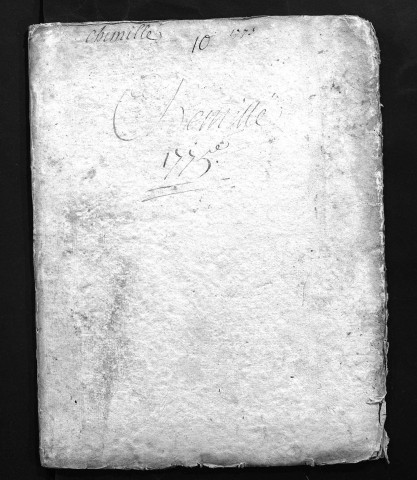 chemillé 10 1775
Chemillé
1775